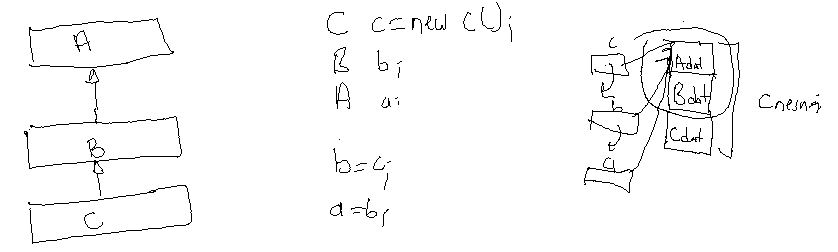 A
B
C
C c=new C();
B b;
A a;
b=c;
a=b;
c
b
a
Adat
Bdat
Cdat
C nesnesi